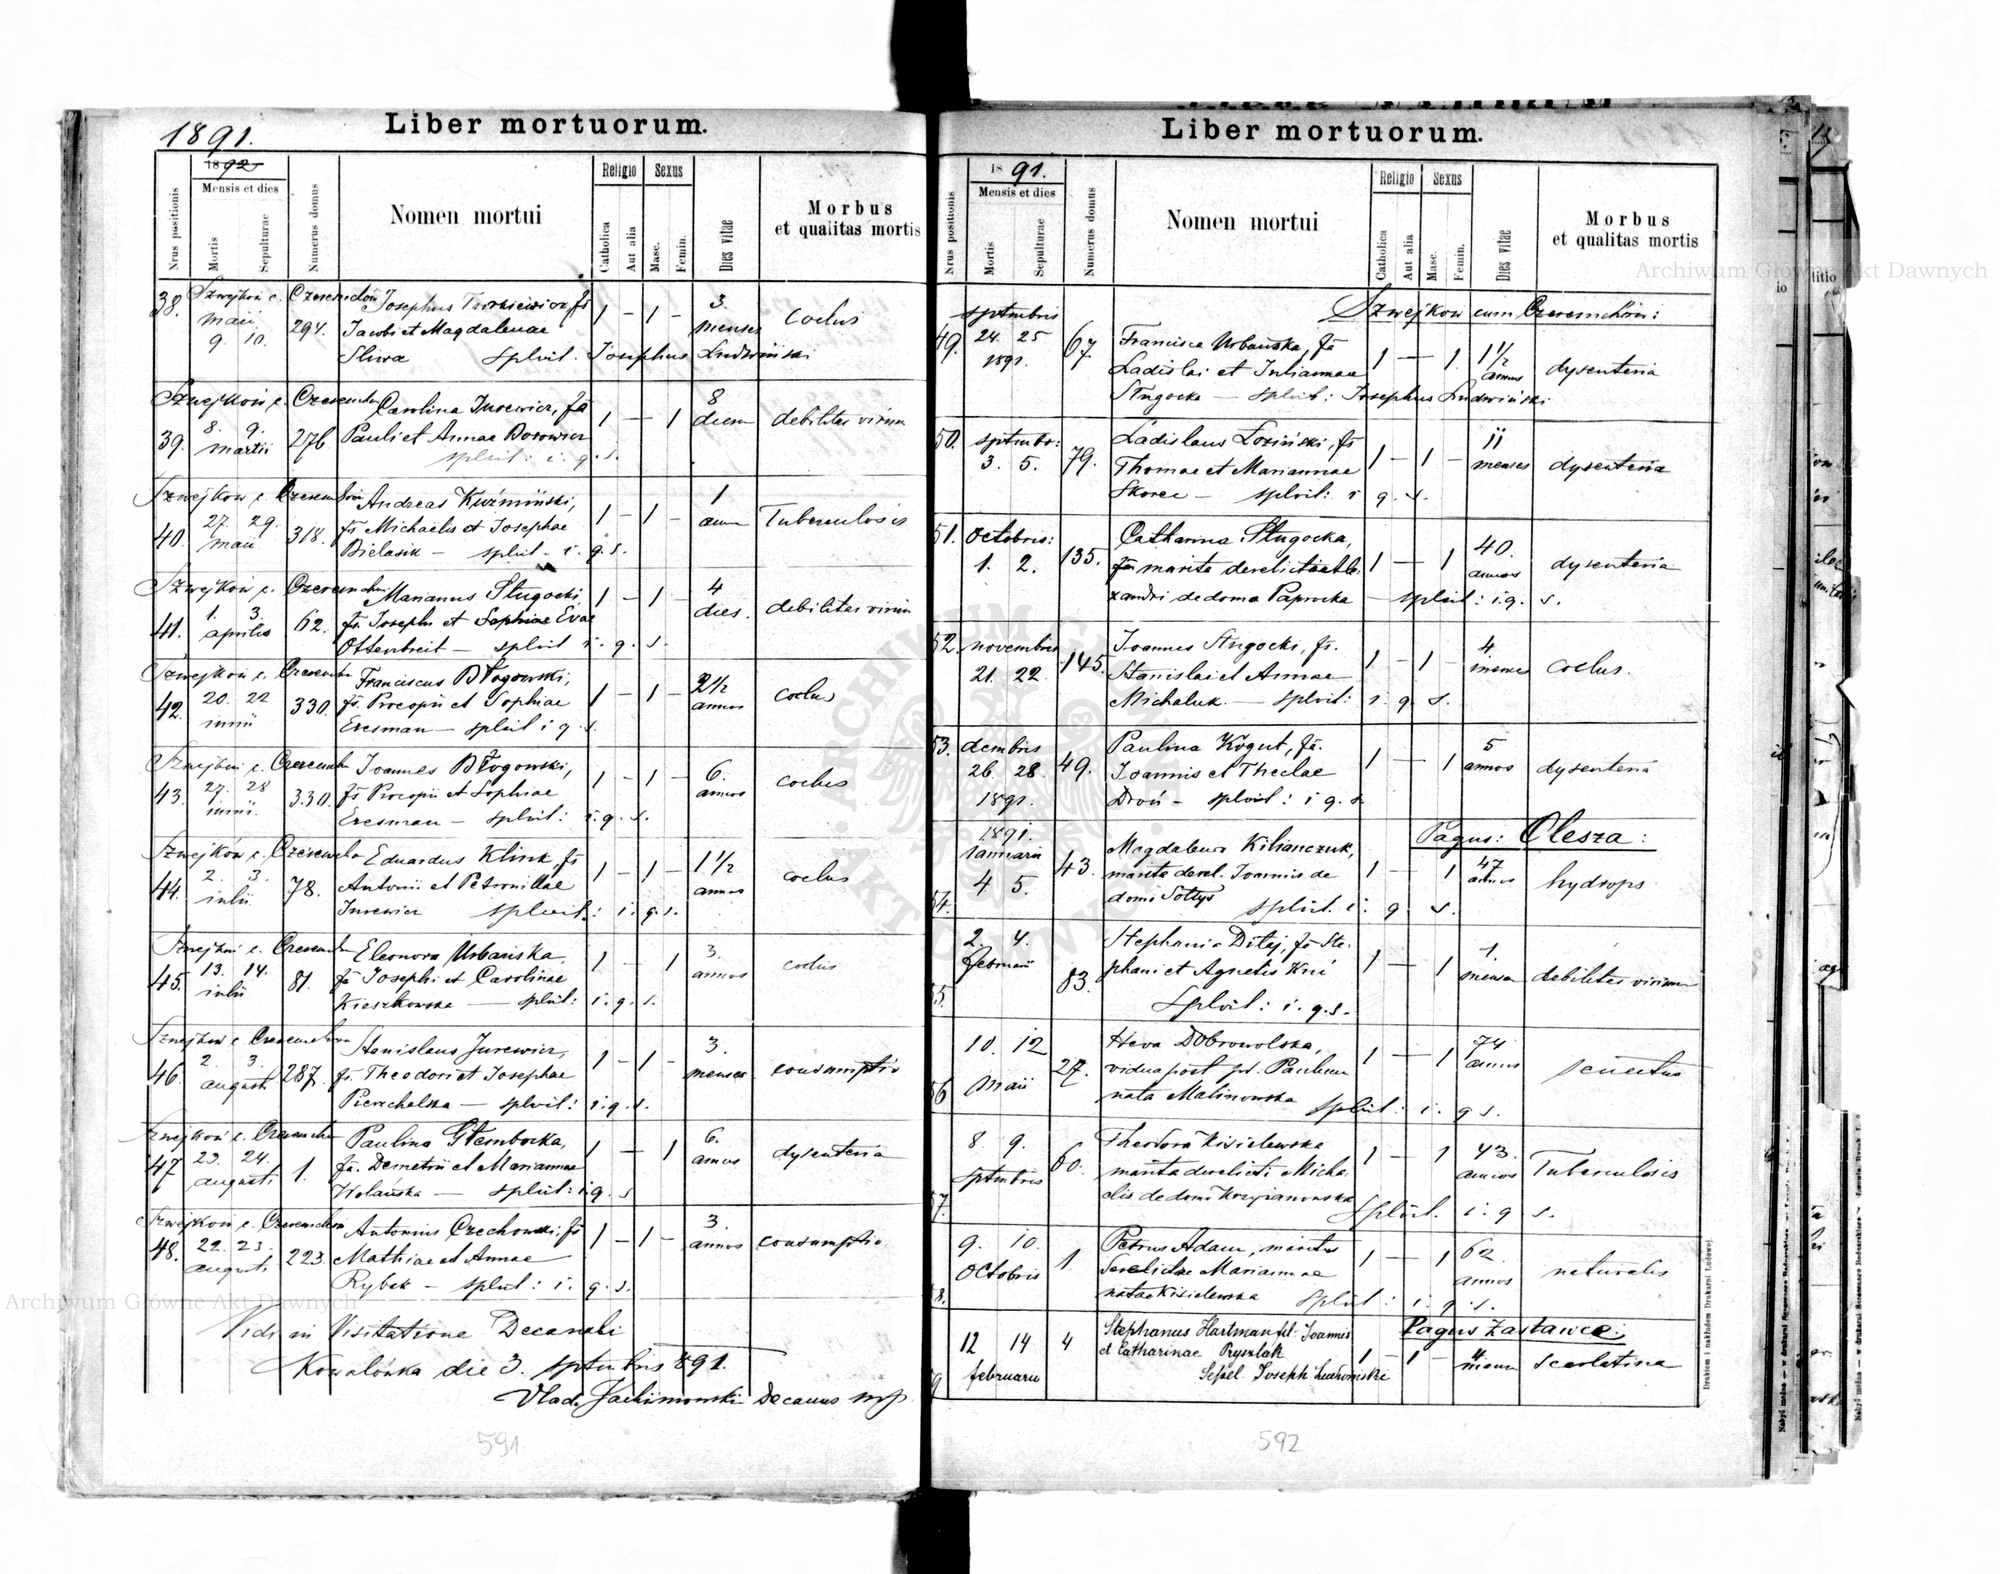 1891.
Liber mortuorum.
1892
Nrus positionis
Mensis et dies
Mortis
Sepulturae
Numerus domus
Nomen mortui
Religio
Catholica
Aut alia
Sexus
Masc.
Femin.
Dies vitae
Morbus
et qualitas mortis
38. Szwejków c. Czeremchów Josephus Turkiewicz, fs
maii 294. 1 – 1 – 3. menses coelus
9. 10. Jacobi et Magdalenae
Sliwa splvit. Josephus Ludwiński
Szwejków c. Czeremchów Carolina Jurewicz, fa
39. 8. 9. martii 276 Pauli et Annae Borowicz 1 – 1 8 dierum debilitas virium
splvit: i. q. s.
Szwejków c. Czeremchów Andreas Kuźmiński,
40. 27. 29. maii 318. fs Michaelis et Josephae 1 – 1 – 1 annu Tuberculosis
Bielasik – splvit – i. q. s.
Szwejków c. Czeremchów Marianus Sługocki
41. 1. 3. aprilis 62. fs. Josephi et Sophiae Evae 1 – 1 – 4 dies. debilitas virium
Ottenbreit – splvit i. q. s.
Szwejków c. Czeremcho Franciscus Błogowski,
42. 20. 22 iunii 330. fs. Procopii et Sophiae 1 – 1 – 2 1/2 annos coelus
Eresman – splvit i q. s.
Szwejków c. Czeremcho Joannes Błogowski,
43. 27. 28 iunii. 330. fs Procopii et Sophiae 1 – 1 – 6. annos coelus
Eresman – splvit: i. q. s.
Szwejków c. Czeremcho Eduardus Klink, fs
44. 2. 3. iulii 78. Antonii et Petronillae 1 – 1 – 1 1/2 annos coelus
Jurewicz splvit: i. q. s.
Szwejków c. Czeremcho Eleonora Urbańska,
45. 13. 14. iulii 81. fa Josephi et Carolinae 1 – 1 3. annos coelus
Kieszkowska – splvit: i. q. s.
Szwejków c. Czeremchów Stanislaus Jurewicz,
46. 2. 3. augusti 287. fs. Theodori et Josephae 1 – 1 – 3. menses consumptio
Pierzchalska – splvit: i. q. s.
Szwejków c. Czeremcho Paulina Stembocka,
47 23. 24. augusti 1. fa. Demetrii et Mariannae 1 – 1 6. annos dysenteria
Wolańska – splvit: i. q. s
Szwejków c. Czeremchów Antonius Czechowski, fs
48. 22. 23. augusti 223. Mathiae et Annae 1 – 1 – 3. annos consumptio
Rybak – splvit: i. q. s.
Vidi in Visitatione Decanali
Kowalówka die 3. sptmbris 891.
Vlad. Jachimowski Decanus mp
591
Liber mortuorum.
1891.
Nrus positionis
Mensis et dies
Mortis
Sepulturae
Numerus domus
Nomen mortui
Religio
Catholica
Aut alia
Sexus
Masc.
Femin.
Dies vitae
Morbus
et qualitas mortis
Szwejków cum Czeremchów:
49. sptmbris 24. 25 1891. 67. Francisca Urbańska, fa 1 – 1. 1 1/2 annus dysenteria
Ladislai et Juliannae
Sługocka – splvit: Josephus Ludwiński
50. sptmbr: 3. 5. 79. Ladislaus Łoziński, fs
Thomae et Mariannae 1 – 1 – 11 menses dysenteria
Skorec – splvit: i q. s.
51. Octobris: 1. 2. 135. Catharina Sługocka,
fa marita derelicta Ale 1 – 1 40. annos dysenteria
xandri de doma Paprocka – splvit: i. q. s.
52. novembris 21. 22. 145. Joannes Sługocki, fs.
Stanislai et Annae 1 – 1 – 4 menses coelus.
Michaluk. – splvit: i. q. s.
53. dcembris 26. 28. 1891. 49. Paulina Kogut, fa.
Joannis et Theclae 1 – 1 5 annos dysenteria
Droń – splvit: i q. s.
Pagus: Olesza:
54. 1891. Januarii 4 5. 43. Magdalena Kihanczuk,
marita derel. Joannis de 1 – 1 47 annos hydrops
domo Sołtys splvit. i. q. s.
2. 4. Februarii 83. Stephania Ditej, fa Ste-
phani et Agnetis Kni 1 – 1 1. mensa debilitas virium
Splvit: i. q. s.
56 10. 12 Maii 27. Heva Dobrowolska,
vidua post pr. Paulum 1 – 1 74 annos senectus
nata Malinowska splvit: i. q s.
57. 8. 9. sptmbris 60. Theodora Kisielewska
marita derelicti Micha- 1 – 1 43. annos Tuberculosis
elis de domo Krzyżanowska Splvit. i. q s.
9. 10. Octobris 1 Petrus Adam, maritus
derelictae Mariannae 1 – 1 62 annos naturalis
natae Kisielewska splvit: i. q. s.
Pagus Zastawce:
12 14 februarii 4 Stephanus Hartman fil. Joannis
et Catharinae Pryszlak 1 – 1 – 4 mense scarlatina
Sepel. Joseph Ludwiński
Drukiem i nakładem Drukarni Ludowej.
592
Archiwum Główne Akt Dawnych
Archiwum Główne Akt Dawnych